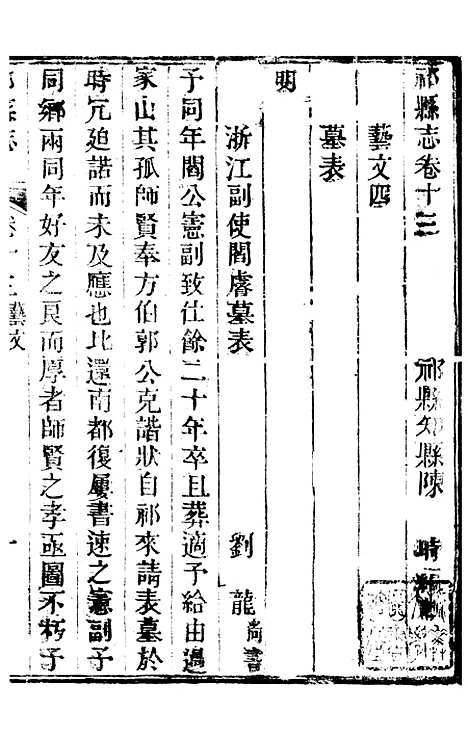 祁縣志卷十三
祁縣知縣陳 時
藝文四
墓表
明
浙江副使閻睿墓表 劉龍尚書
予同年閻公憲副致仕餘二十年卒且葬適予給由過
家山其孤師賢奉方伯郭公克諧狀自祁來請表墓於
時冗廹諾而未及應也比還南都復屢書速之憲副予
同鄉兩同年好友之良而厚者師賢之孝亟圖不朽予